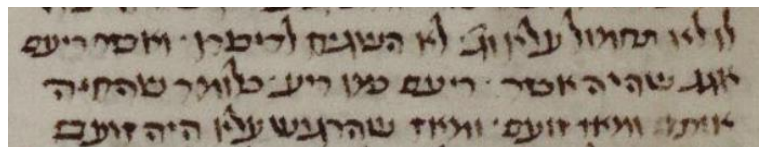 לו לא תחמול עליו וג׳ לא השגיח לדיברו · ואסר ריעם
אגג שהיה אסר · ריעם כמו ריע · כלומר שהחיה
אותו ומאז זועם · ומאז שהרגיש עליו היה זועם